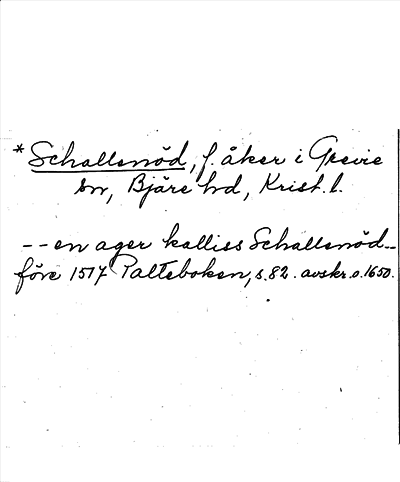 * Schallsnöd, f. åker i Grevie
sn, Bjäre hd, Krist. l.
-- en ager kalliss Schallsnöd --
före 1517 Palteboken, s. 82. avskr. o. 1650.